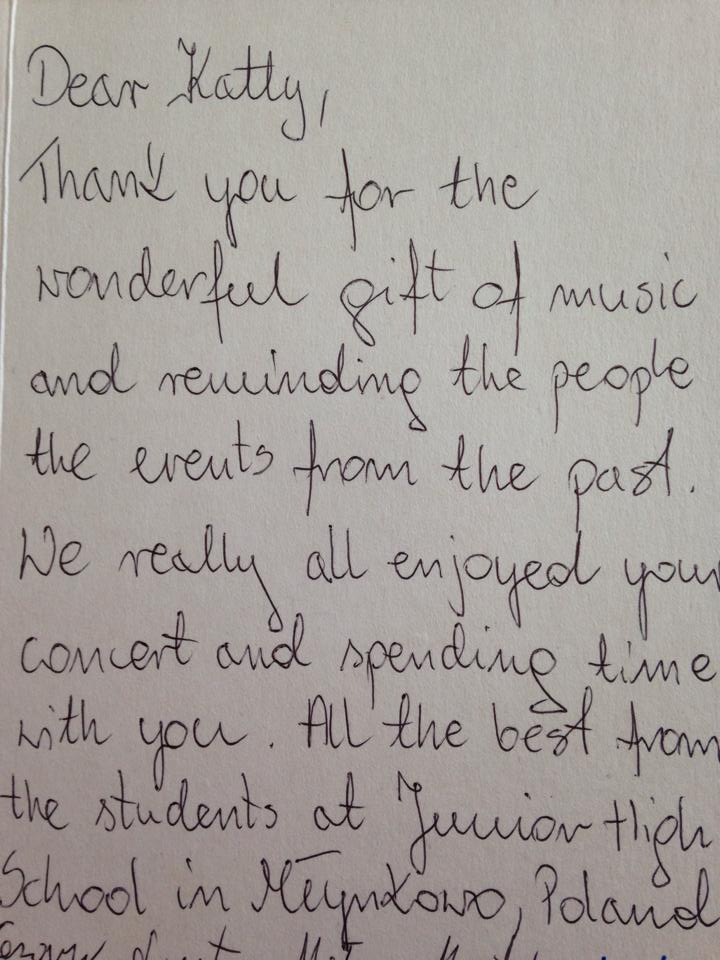 Dear Katty,
Thank you for the
wonderful gift of music
and reminding the people
the events from the past.
We really all enjoyed your
concert and spending time
with you. All the best from
the students at Junior High
School in Młynkowo, Poland